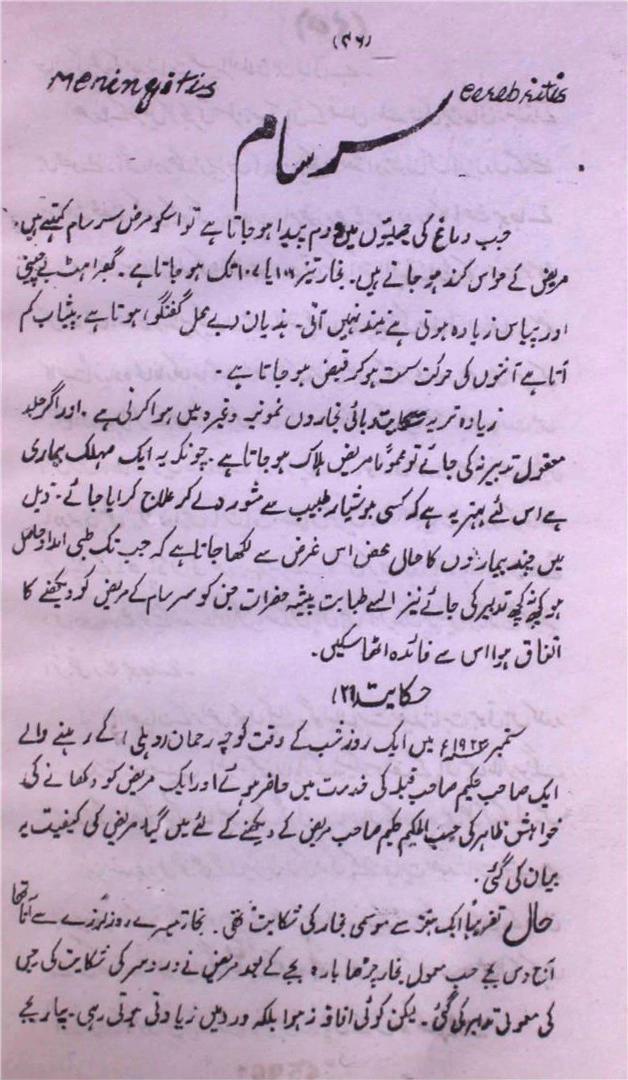 (۳۶)
Meningitis cerebritis
سرسام
جب دماغ کی جھلیوں میں ورم پیدا ہو جاتا ہے تو اسکو مرض سرسام کہتے ہیں۔
مریض کے حواس کند ہو جاتے ہیں۔ بخار تیز ۱۰۶ یا ۱۰۷ تک ہو جاتا ہے۔ گھبراہٹ بے چینی
اور پیاس زیادہ ہوتی ہے نیند نہیں آتی۔ ہذیان بے محل گفتگو ہوتا ہے پیشاب کم
آتا ہے آنتوں کی حرکت سست ہو کر قبض ہو جاتا ہے۔
زیادہ تر یہ شکایت وبائی بخاروں نمونیہ وغیرہ میں ہوا کرتی ہے۔ اور اگر جلد
معقول تدبیر نہ کی جائے تو عموماً مریض ہلاک ہو جاتا ہے۔ چونکہ یہ ایک مہلک بیماری
ہے اس لئے بہتر یہ ہے کہ کسی ہوشیار طبیب سے مشورہ لے کر علاج کرایا جائے۔ ذیل
میں چند بیماروں کا حال محض اس غرض سے لکھا جاتا ہے کہ جب تک طبی امداد حاصل
ہو کچھ نہ کچھ تدبیر کی جائے نیز ایسے طبابت پیشہ حضرات جن کو سرسام کے مریض کو دیکھنے کا
اتفاق ہوا اس سے فائدہ اٹھا سکیں۔
حکایت (۲)
ستمبر ۱۹۲۳ء میں ایک روز شب کے وقت کوچہ رحمان (دہلی) کے رہنے والے
ایک صاحب حکیم صاحب قبلہ کی خدمت میں حاضر ہوئے اور ایک مریض کو دکھانے کی
خواہش ظاہر کی حسب الحکم حکیم صاحب مریض کے دیکھنے کے لئے میں گیا۔ مریض کی کیفیت یہ
بیان کی گئی۔
حال تقریباً ایک ہفتہ سے موسمی بخار کی شکایت تھی۔ بخار تیسرے روز لرزے سے آتا تھا
آج دس بجے حسب معمول بخار چڑھا بارہ بجے کے بعد مریض نے درد سر کی شکایت کی جس
کی معمولی تدبیر کی گئی۔ لیکن کوئی افاقہ نہ ہوا بلکہ درد میں زیادتی ہوتی رہی۔ چار بجے